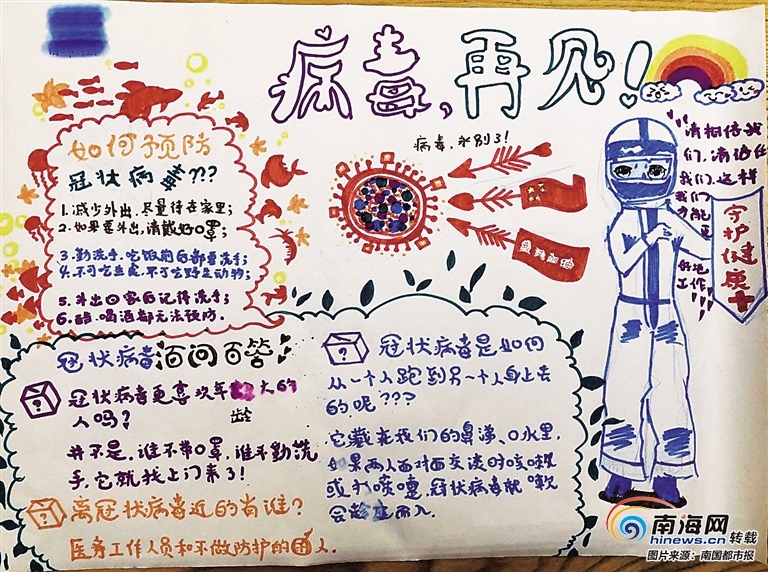 病毒,再见!
如何预防
冠状病毒???
1.减少外出,尽量待在家里;
2.如果要外出,请戴好口罩;
3.勤洗手,吃饭前后都要洗手;
4.不可吃生食,不可吃野生动物;
5.外出回家后记得洗手;
6.醋、喝酒都无法预防.
病毒,永别了!
重庆加油
请相信我
们,请信任
我们,这样
我们
才能更
好地
工作!
守护健康
冠状病毒百问百答!
?
冠状病毒更喜欢年龄大的
人吗?
并不是,谁不带口罩,谁不勤洗
手,它就找上门来了!
?
离冠状病毒近的有谁?
医务工作人员和不做防护的人.
?
冠状病毒是如何
从一个人跑到另一个人身上去
的呢???
它藏在我们的鼻涕、口水里,
如果两人面对面交谈时咳嗽
或打喷嚏,冠状病毒就
会趁虚而入.
南海网
hinews.cn 转载
图片来源:南国都市报